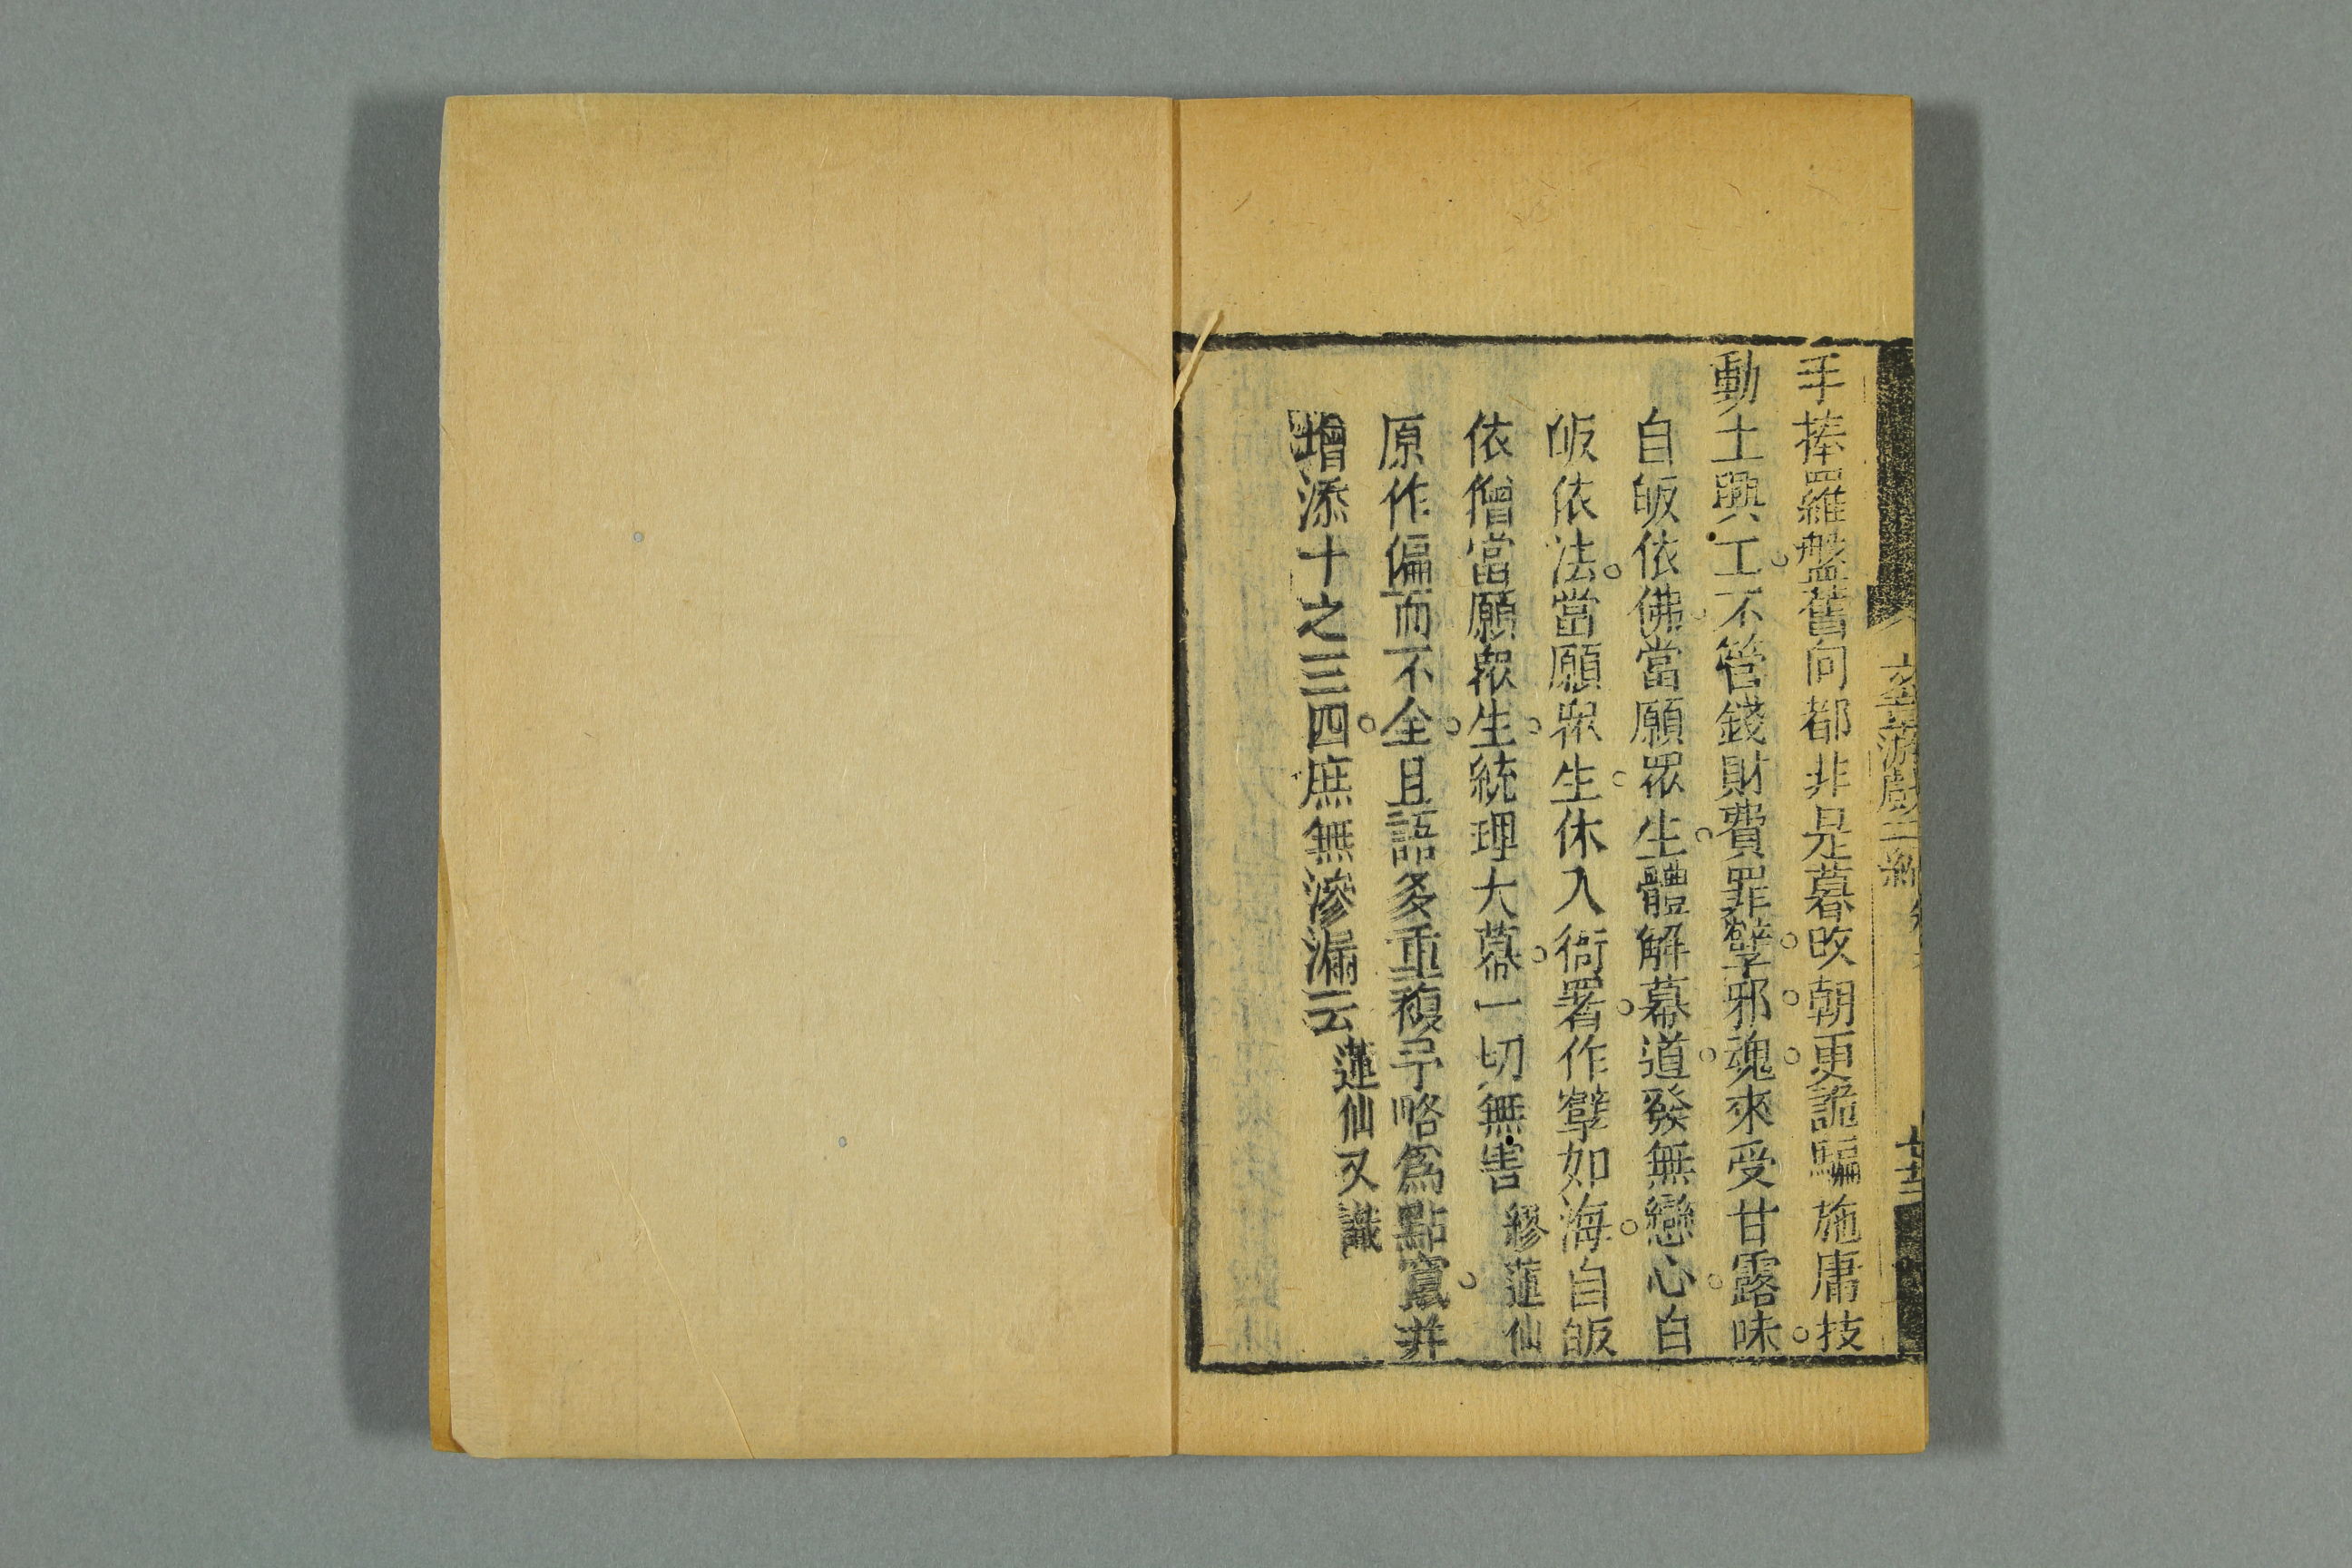 文章游戲二編
廿三
手捧羅盤舊向都非是暮改朝更詭騙施庸技
動土興工不管錢財費罪孽邪魂來受甘露味
自皈依佛當願眾生體解幕道發無戀心自
皈依法當願眾生休入衙署作孽如海自皈
依僧當願眾生統理大幕一切無害 繆蓮仙
原作偏而不全且語多重複予略為點竄并
增添十之三四庶無滲漏云 蓮仙又識